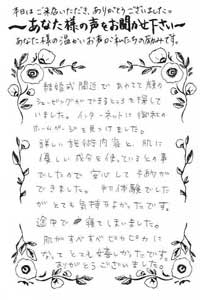 本日はご来店いただき、ありがとうございました。
～あなた様の声をお聞かせ下さい～
あなた様の温かいお声が私たちの励みです。
結婚式間近で あわてて顔の
シェービングができるところを探して
いました。インターネットで御社の
ホームページを見つけました。
詳しい施術内容と、肌に
優しい成分を使っているとの事
でしたので 安心して予約が
できました。初体験でした
がとても気持ちよかったです。
途中で 寝てしまいました。
肌がすべすべピカピカに
なって とても嬉しかったです。
ありがとうございました。